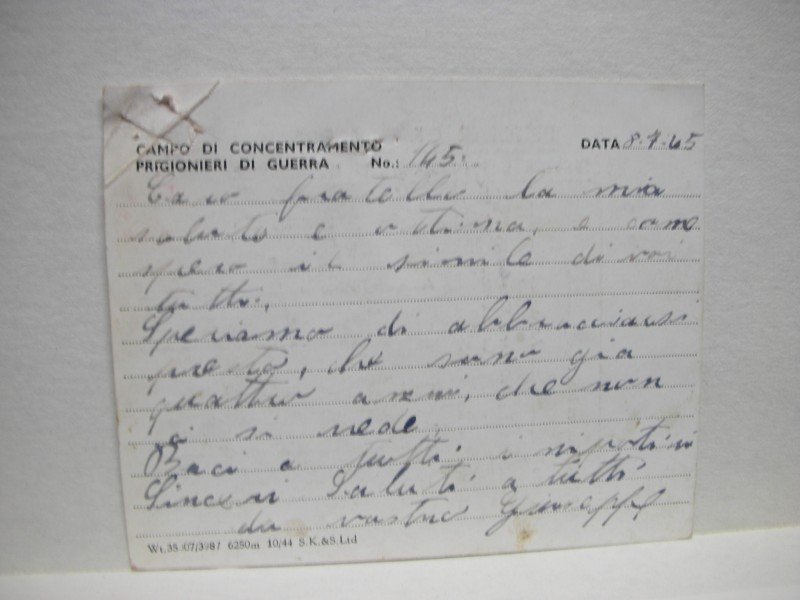 CAMPO DI CONCENTRAMENTO
PRIGIONIERI DI GUERRA No.: 145. DATA 8-7-45
Caro fratello la mia
salute è ottima, e come
spero il simile di voi
tutti.
Speriamo di abbracciarsi
presto, che sono già
quattro anni, che non
ci si vede.
Baci a tutti i nipotini
Sinceri Saluti a tutti
da vostro Giuseppe
Wt.35107/3987 6250m 10/44 S.K.&S.Ltd